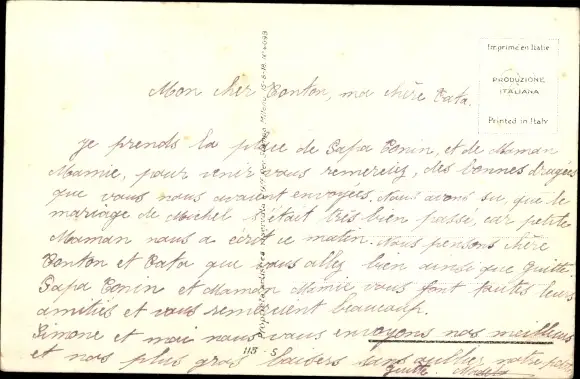 Imprimé en Italie
PRODUZIONE
ITALIANA
Printed in Italy
Mon cher Tonton, ma chère Tata.
Je prends la place de Papa Tonin, et de Maman
Mamie, pour venir vous remercier, des bonnes dragées
que vous nous avaient envoyées. Nous avons su, que le
mariage de Michel s'était très bien passé, car petite
Maman nous a écrit ce matin. Nous pensons chère
Tonton et Tata que vous allez bien ainsi que Guitte.
Papa Tonin et Maman Mimie vous font toutes leurs
amitiés et vous remercient beaucoup.
Simone et moi nous vous envoyons nos meilleurs
et nos plus gros baisers sans oublier notre petite
Guitte.
113 S